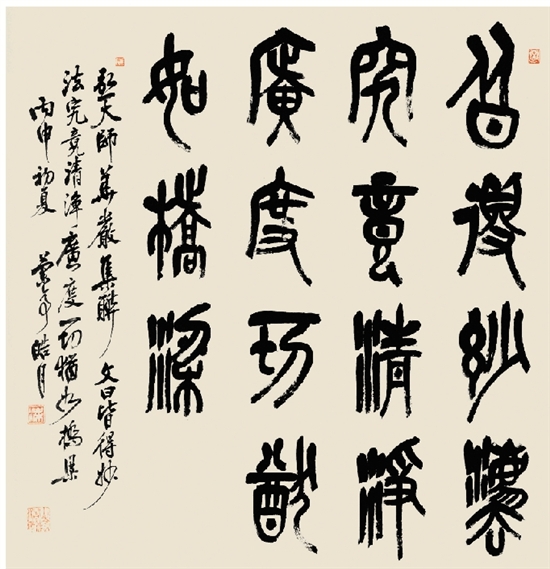 皆得妙灋
究竟清淨
廣度一切猶
如橋梁
弘一大師華嚴集聯 文曰皆得妙
法究竟清淨 廣度一切猶如橋梁
丙申初夏 皓月